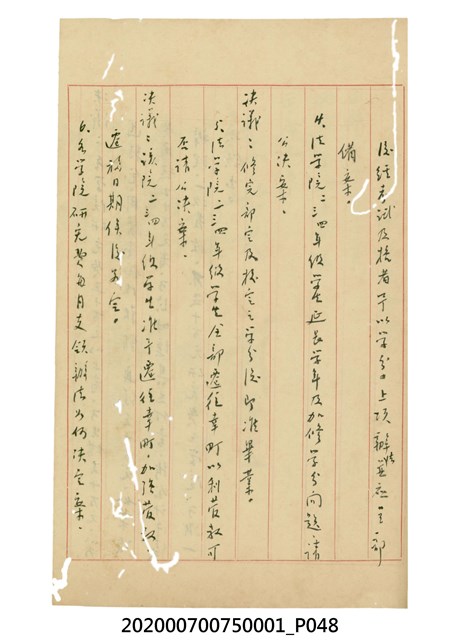 後經考試及格者予以學分。上項辦法並應呈部
備案。
4.法學院二三四年級學生延長學年及加修學分問題請
公決案。
決議：修完部定及校定之學分後即准畢業。
5.法學院二三四年級學生全部遷往幸町以利營教可
否請公決案。
決議：該院二三四年級學生准予遷往幸町，加強管教，
遷移日期俟後另定。
6.各學院研究費每月支領辦法如何決定案。
202000700750001_P048